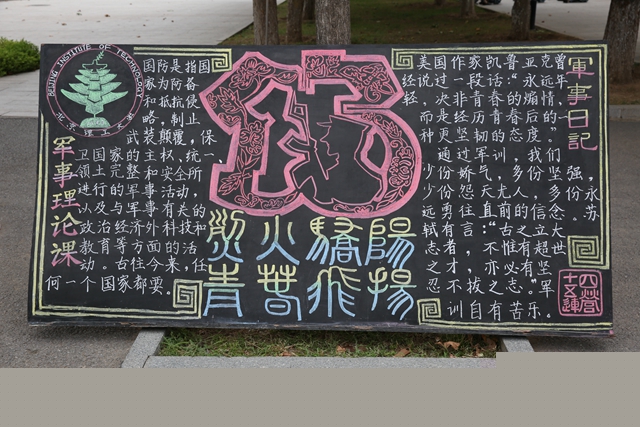 BEIJING INSTITUTE OF TECHNOLOGY
北京理工大学
军事理论课
国防是指国
家为防备
和抵抗侵
略,制止
武装颠覆,保
卫国家的主权,统一、
领土完整和安全所
进行的军事活动,
以及与军事有关的
政治经济科技和
教育等方面的活
动。古往今来,任
何一个国家都要
15
烈火驕陽
青春飛揚
軍事日記
美国作家凯鲁亚克曾
经说过一段话:“永远年
轻,次非青春的煽情,
而是经历青春后的一
种更坚韧的态度。”
通过军训,我们
少份娇气,多份坚强,
少份怨天尤人,多份永
远勇往直前的信念。苏
轼有言:“古之立大
志者,不惟有超世
之才,亦必有坚
忍不拔之志。”军
训自有苦乐。
四營
十五連